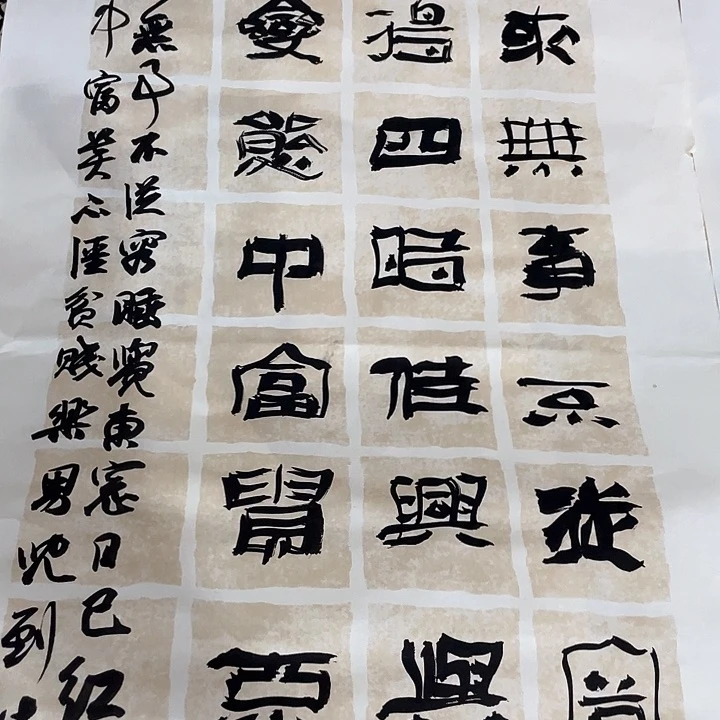 來無事不從容
得四時佳興與
變態中富貴不
無事不從容睡覺東窓日已紅
中富貴不淫貧賤樂男兒到